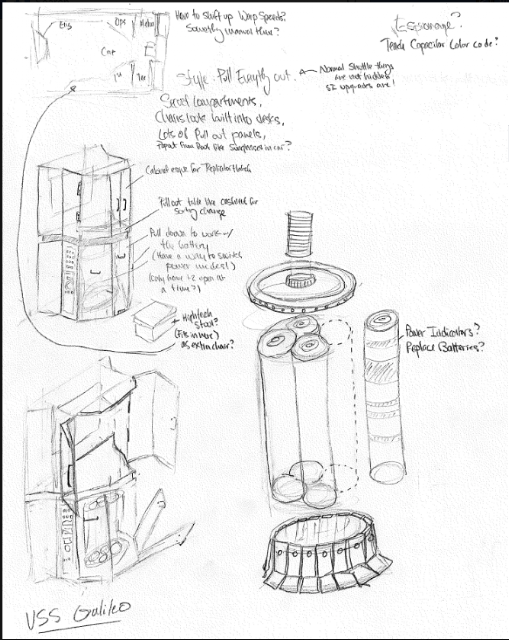 Eng
Ops
Cap
How to start up Warp Speeds?
Something manual there?
Espionage?
Teach Capacitor Color code?
Style: Pull Everything out.
Normal shuttle things
are not hidden
SI upgrades are!
Secret Compartments,
Chairs built into desks,
Lots of Pull out panels,
Popout from Dash like Sunglasses in car?
Cabinet esque for Replicator Hatch
Pullout table like
for
Sorting change
Pull down to work w/
the battery
(Have a way to switch
power modes!)
(only have 1-2 open at
a time?)
High tech
stool?
(Fits in here)
as extra chair?
Power Indicators?
Replace Batteries?
USS Galileo